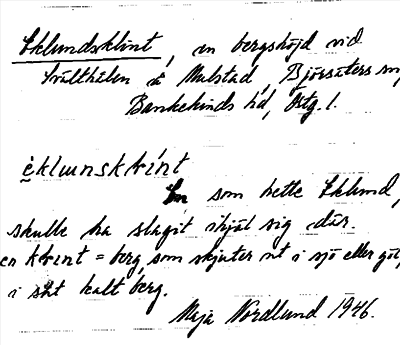 Eklundsklint, en bergshöjd vid
Svälthålen å Mulstad, Björsäters sn,
Bankekinds hd, Östg. l.
èklunskḷínt
En som hette Eklund,
skulle ha slagit ihjäl sig där.
en klint = berg som skjuter ut i sjö eller göl,
i sht kalt berg.
Maja Nordlund 1946.